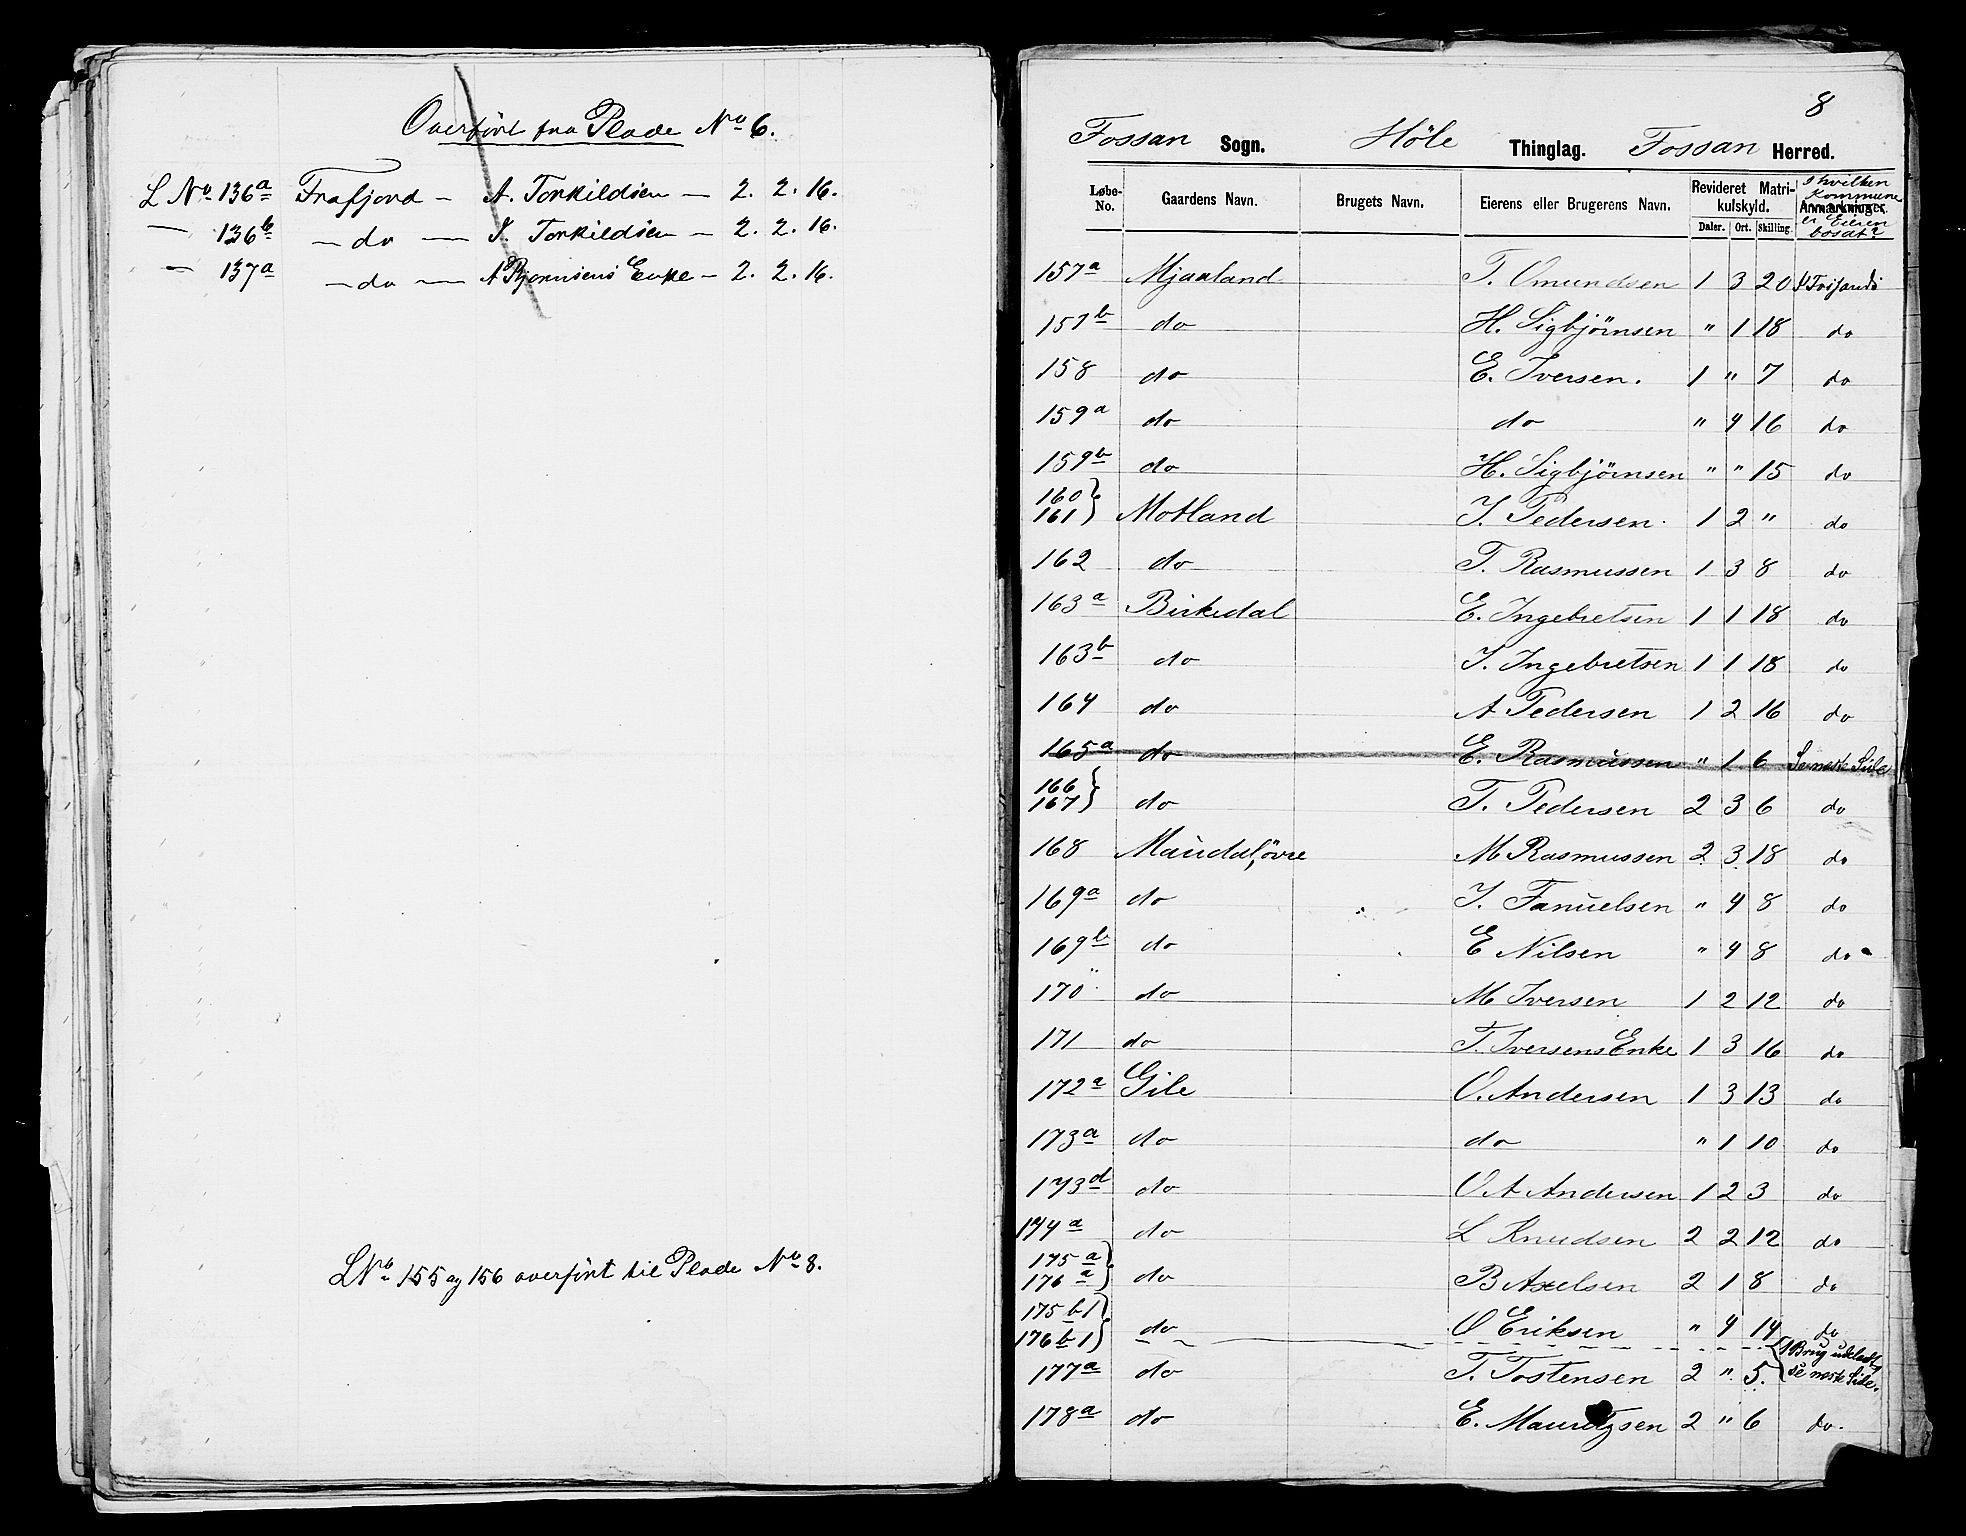 Overført fra Plade No 6.
L No 136a Frafjord - A. Torkildsen - 2. 2. 16.
— 136b — do — T. Torkildsen - 2. 2. 16.
— 137a — do — A Bjørnsens Enke - 2. 2. 16.
LNo 155 og 156 overført til Plade No 8.
8
Fossan Sogn. Höle Thinglag. Fossan Herred.
Løbe-No. Gaardens Navn. Brugets Navn. Eierens eller Brugerens Navn. Revideret Matrikulskyld. Anmærkninger. I hvilken Kommune er Eieren bosat?
Daler. Ort. Skilling.
157a Mjaaland T. Omundsen 1 3 20
157b do H. Sigbjørnsen " 1 18 do
158 do E. Iversen. 1 " 7 do
159a do do " 4 16 do
159b do H. Sigbjørnsen " " 15 do
160 161 } Motland I. Pedersen. 1 2 " do
162 do T. Rasmussen 1 3 8 do
163a Birkedal E. Ingebretsen 1 1 18 do
163b do I. Ingebretsen 1 1 18 do
164 do A Pedersen 1 2 16 do
165a do E. Rasmussen " 1 6 Se næste Side
166 167 } do T. Pedersen 2 3 6 do
168 Maudal, øvre M Rasmussen 2 3 18 do
169a do I. Fanuelsen " 4 8 do
169b do E Nilsen " 4 8 do
170 do M Iversen 1 2 12 do
171 do T. Iversens Enke 1 3 16 do
172a Gile O. Andersen 1 3 13 do
173a do do " 1 10 do
173d do O A Andersen 1 2 3 do
174a do L Knudsen 2 2 12 do
175a 176a } do B Axelsen 2 1 8 do
175b1 176b1 } do O Eriksen " 4 14 do
1 Brug udeladt, se næste Side.
177a do T. Tostensen 2 " 5.
178a do E. Mauritzsen 2 " 6 do.